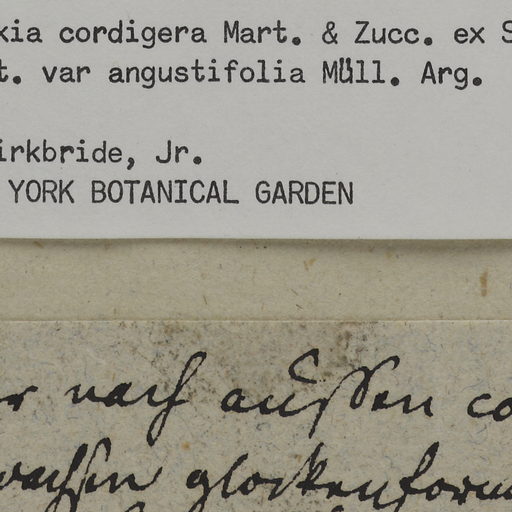 xia cordigera Mart. & Zucc. ex S
t. var angustifolia Müll. Arg.
irkbride, Jr.
YORK BOTANICAL GARDEN
r nach außen co
wachsen glockenform